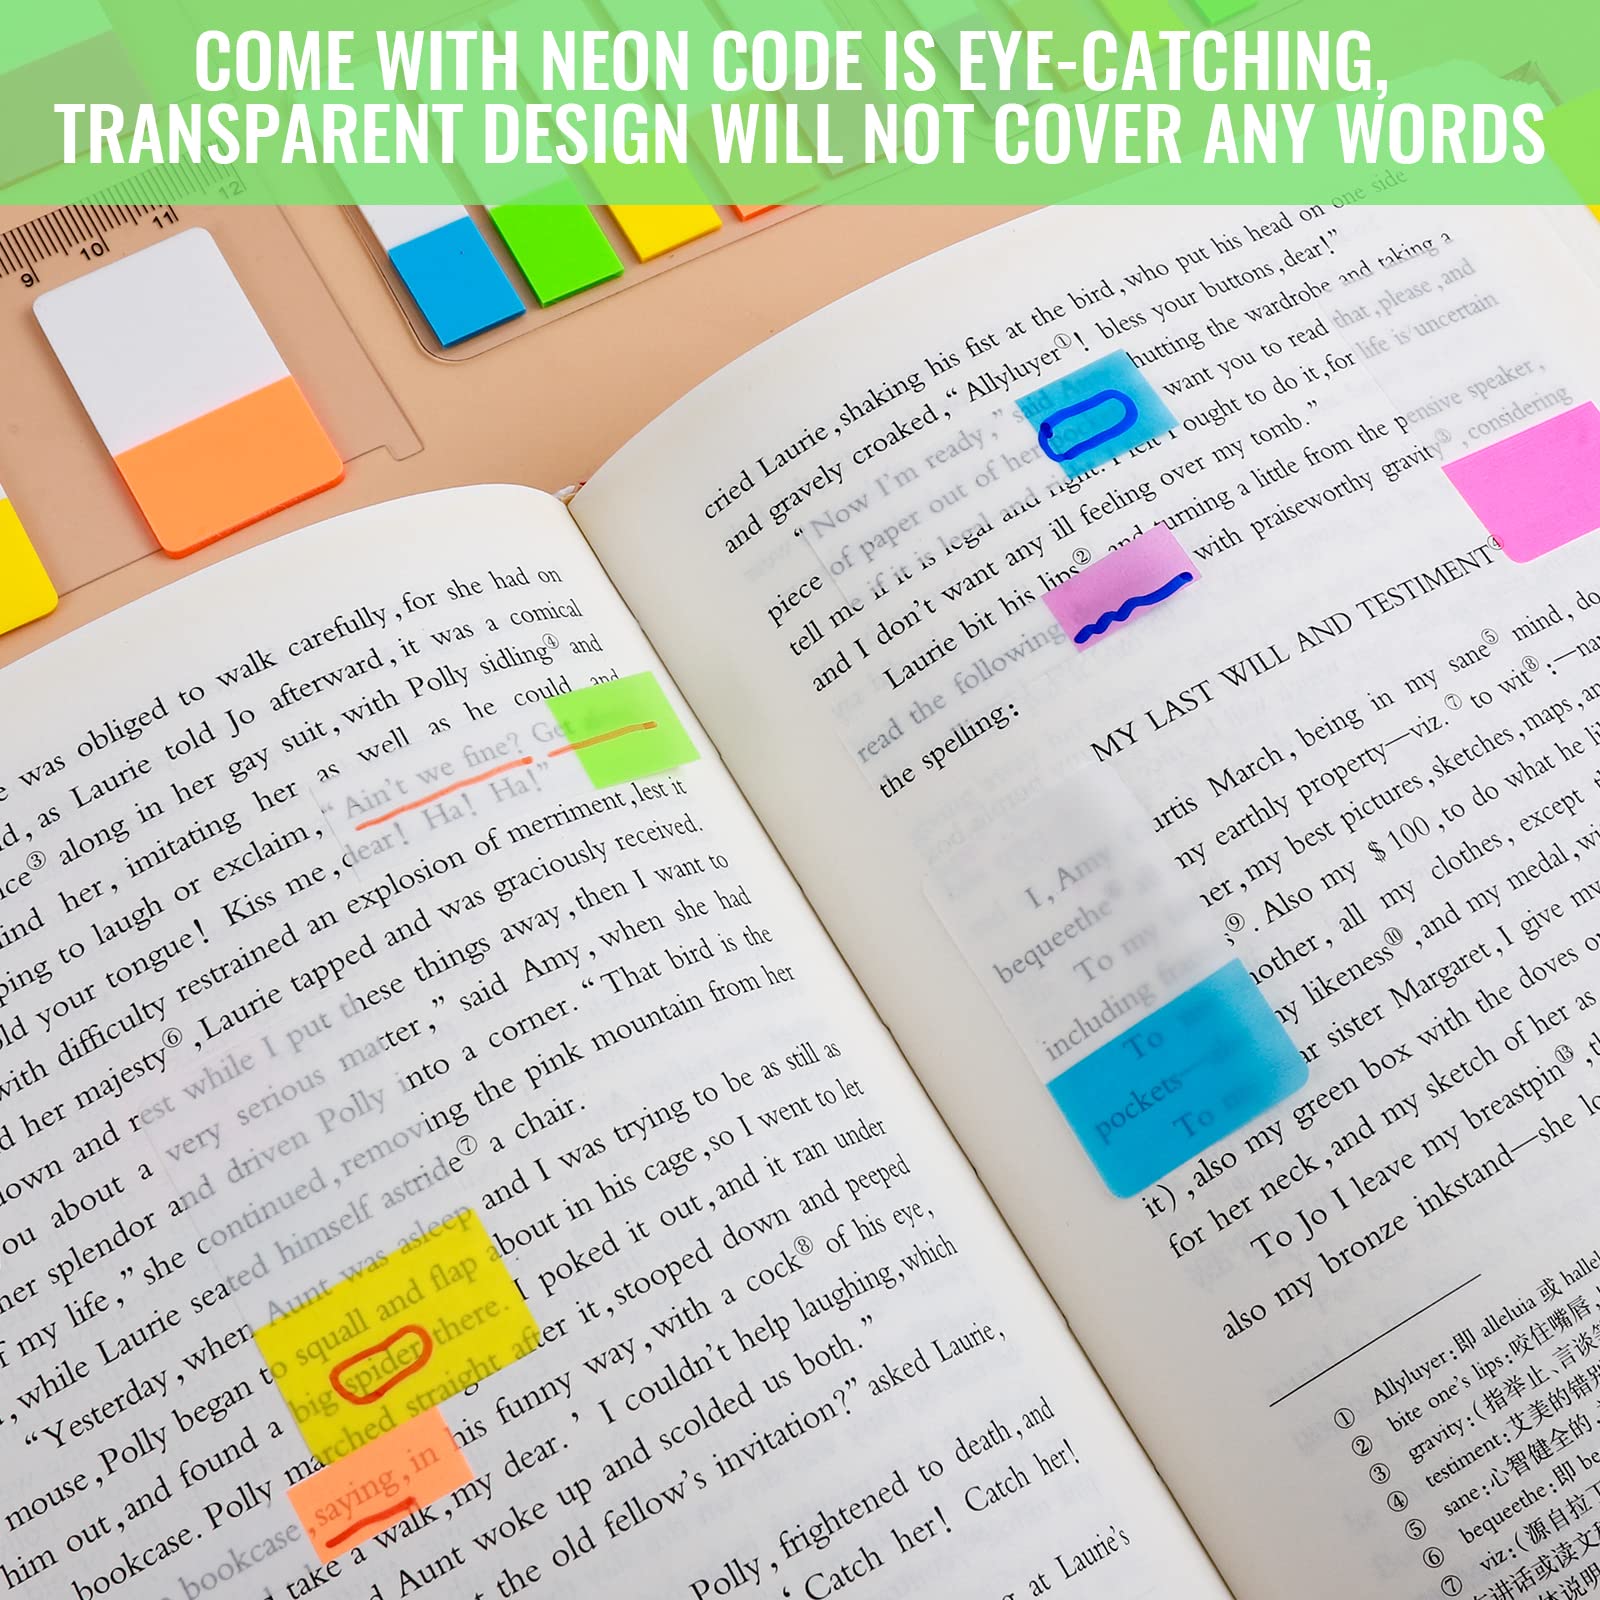 COME WITH NEON CODE IS EYE-CATCHING,
TRANSPARENT DESIGN WILL NOT COVER ANY WORDS
9 10 11 12
was obliged to walk carefully, for she had on
as Laurie told Jo afterward, it was a comical
③ along in her gay suit, with Polly sidling④ and
her, imitating her as well as he could, and
to laugh or exclaim, “Ain't we fine? Get
your tongue! Kiss me, dear! Ha! Ha!”
with difficulty restrained an explosion of merriment, lest it
her majesty⑥, Laurie tapped and was graciously received.
down and rest while I put these things away, then I want to
about a very serious matter,” said Amy, when she had
splendor and driven Polly into a corner. “That bird is the
of my life,” she continued, removing the pink mountain from her
, while Laurie seated himself astride⑦ a chair.
“Yesterday, when Aunt was asleep and I was trying to be as still as
mouse, Polly began to squall and flap about in his cage, so I went to let
him out, and found a big spider there. I poked it out, and it ran under
bookcase. Polly marched straight after it, stooped down and peeped
bookcase, saying, in his funny way, with a cock⑧ of his eye,
take a walk, my dear.’ I couldn't help laughing, which
Aunt woke up and scolded us both.”
the old fellow's invitation?” asked Laurie,
Polly, frightened to death, and
‘Catch her! Catch her!
at Laurie's
cried Laurie, shaking his fist at the bird, who put his head on one side
and gravely croaked, “Allyluyer①! bless your buttons, dear!”
“Now I'm ready,” said Amy, shutting the wardrobe and taking a
piece of paper out of her pocket. want you to read that, please, and
tell me if it is legal and right. I felt I ought to do it, for life is uncertain
and I don't want any ill feeling over my tomb.”
Laurie bit his lips②, and turning a little from the pensive speaker,
read the following with praiseworthy gravity③, considering
the spelling:
MY LAST WILL AND TESTIMENT④
I, Amy Curtis March, being in my sane⑤ mind, do
bequeethe⑥ my earthly property—viz.⑦ to wit⑧:—
To my my best pictures, sketches, maps,
including ⑨. Also my $ 100, to do what he
To mother, all my clothes, except
pockets— my likeness⑩, and my medal,
To sister Margaret, I give my
it), also my green box with the doves
for her neck, and my sketch of her as
To Jo I leave my breastpin⑬,
also my bronze inkstand—she
① Allyluyer:即 alleluia 或
② bite one's lips:咬住嘴唇,
③ gravity:(指举止、言谈
④ testiment:艾美的错别
⑤ sane:心智健全的
⑥ bequeethe:即
⑦ viz:(源自拉丁
讲话或读文